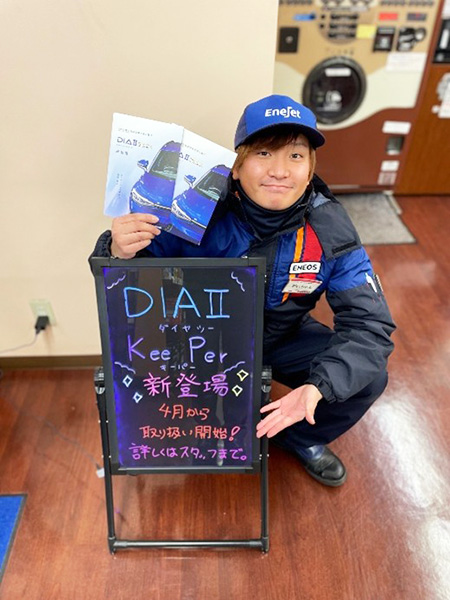 EneJet
DIAII
DIAII
ENEOS
DIAII
ダイヤツー
KeePer
キーパー
新登場
4月から
取り扱い開始!
詳しくはスタッフまで。